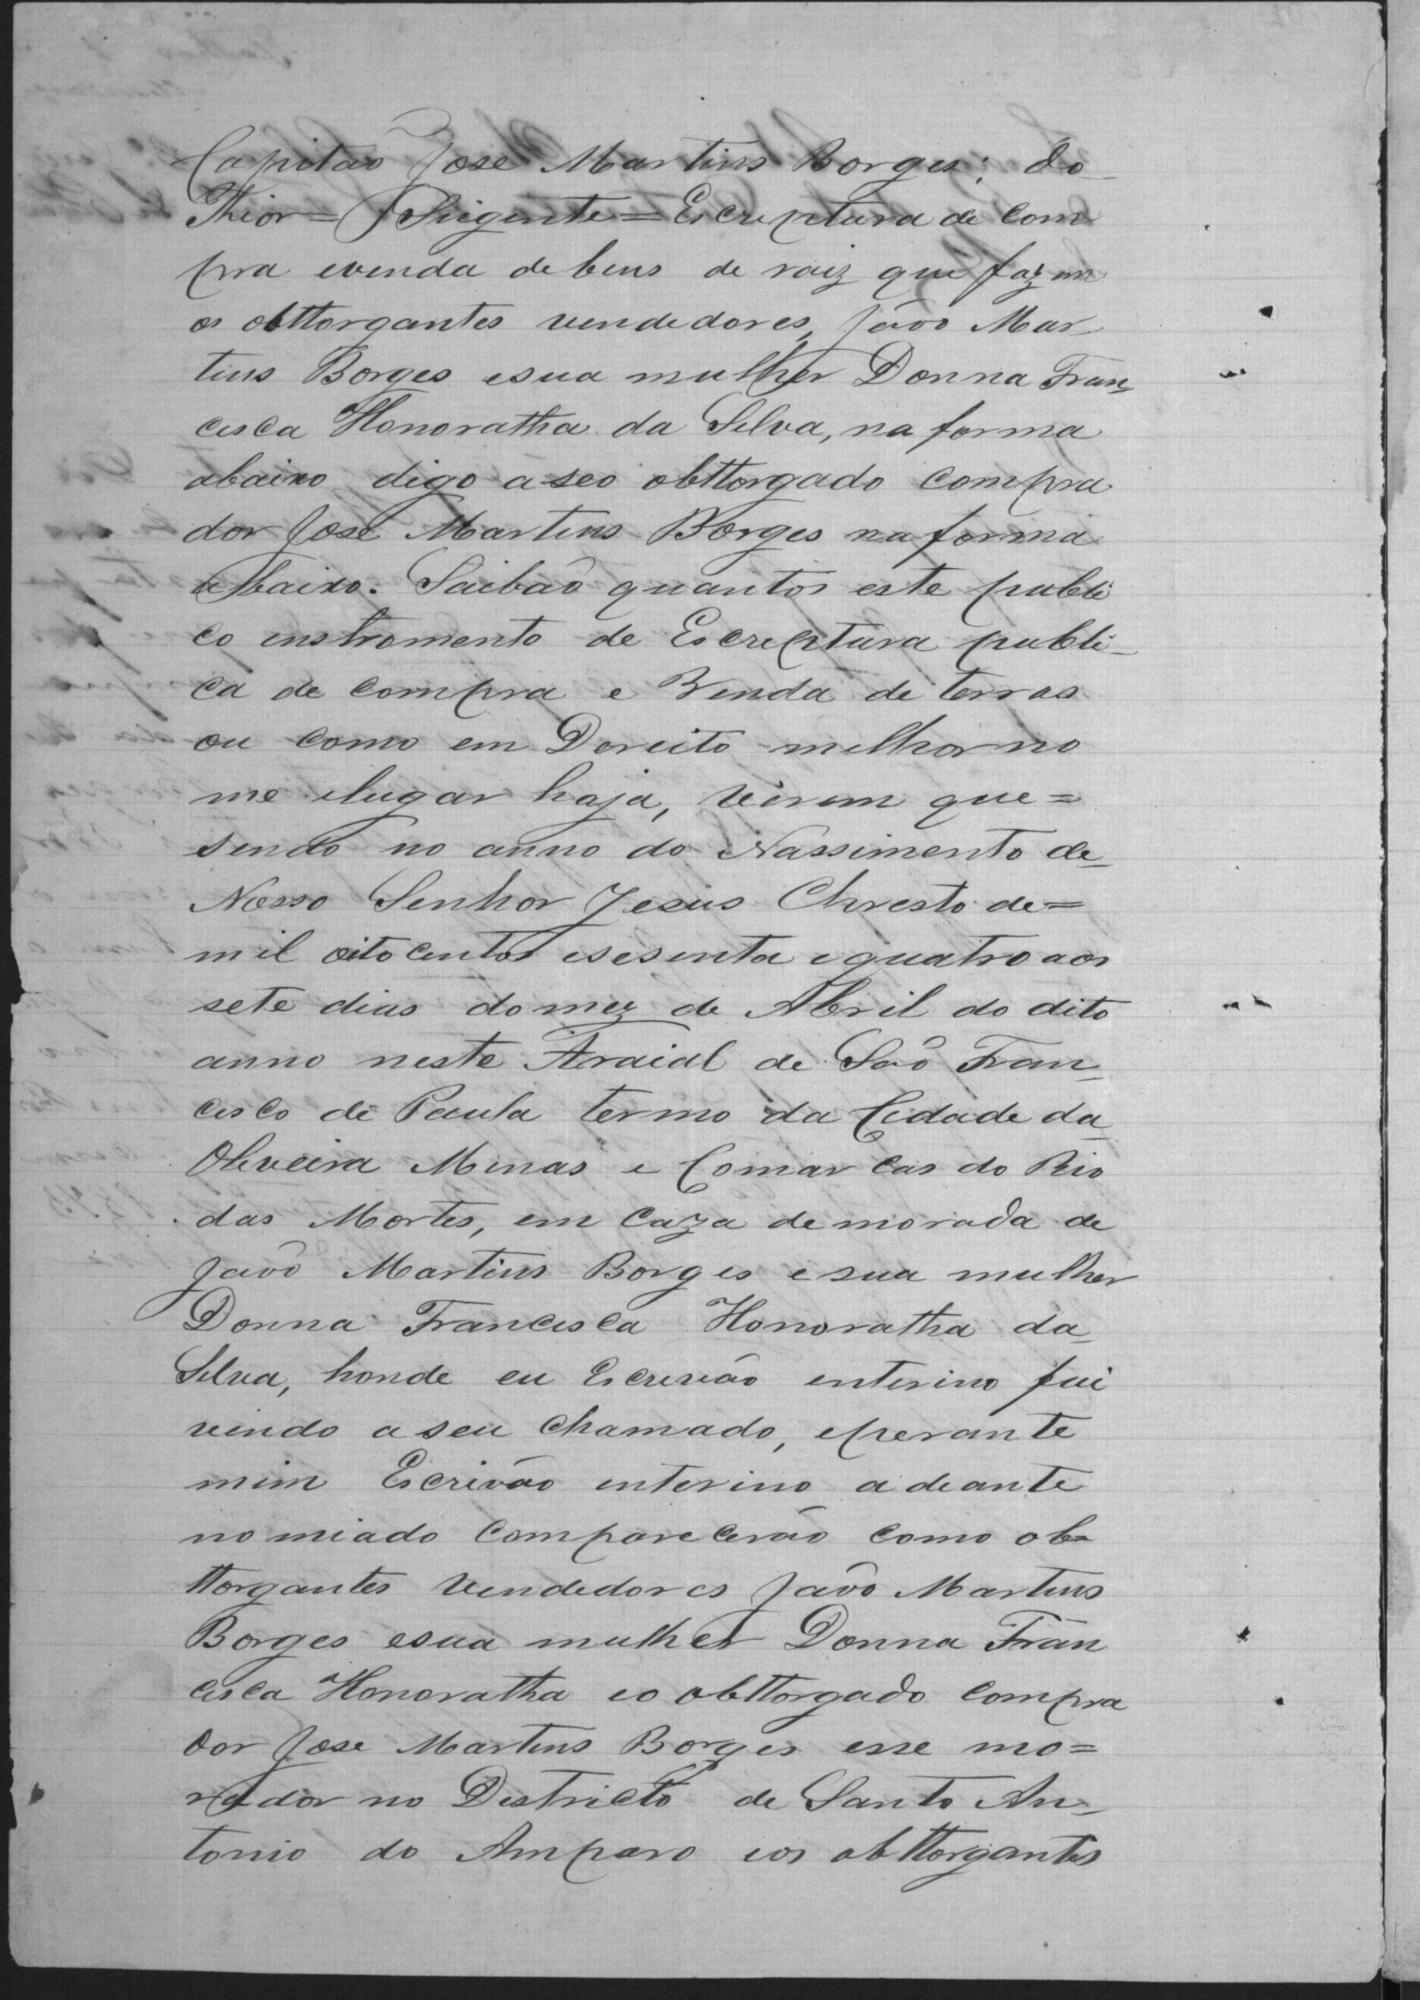 Capitão José Martins Borges; do
Thior = Siigente = Escreptura de com
pra evenda de bens de raiz que fazem
os obttorgantes vendedores, João Mar
tins Borges esua mulher Donna Fran
cisca Honoratha da Silva, na forma
abaixo digo a seo obttorgado compra
dor José Martins Borges na forma
abaixo. Saibão quantos este publi
co enstromento de Escreptura publi-
ca de compra e Venda de terras
ou como em Dereito melhor no
me elugar haja, virem que=
sendo no anno do Nassimento de
Nosso Senhor Jesus Chresto de=
mil oito centos esesenta equatro aos
sete dias domez de Abril do dito
anno neste Araial de São Fran
cisco de Paula termo da Cidade da
Oliveira Minas e Comarcas do Rio
das Mortes, em Caza demorada de
João Martins Borges e sua mulher
Donna Francisca Honoratha da
Silva, honde eu Escrivão enterino fui
vindo a seu chamado, eperante
mim Escrivão enterino adeante
nomiado Comparecerão como ob=
ttorgantes Vendedores João Martins
Borges esua mulher Donna Fran
cisca Honoratha eo obttorgado compra
dor José Martins Borges esse mo=
rador no Destricto de Santo An
tonio do Amparo eos obttorgantes